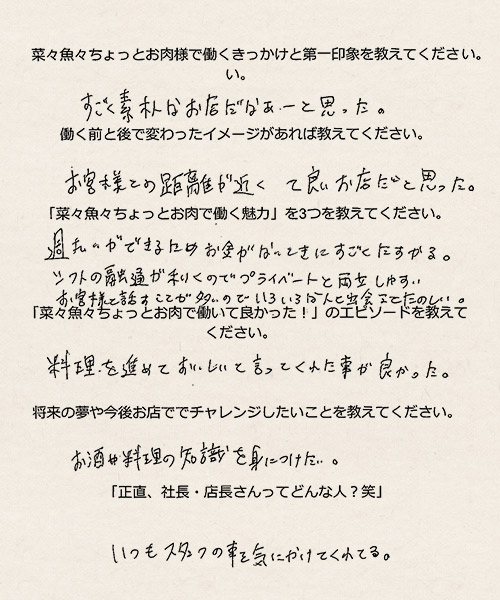 菜々魚々ちょっとお肉様で働くきっかけと第一印象を教えてください。
い。
すごく素朴なお店だなぁーと思った。
働く前と後で変わったイメージがあれば教えてください。
お客様との距離が近くて良いお店だと思った。
「菜々魚々ちょっとお肉で働く魅力」を3つを教えてください。
週払いができるためお金がないときにすごくたすかる。
シフトの融通が利くのでプライベートと両立しやすい
お客様と話すことが多いのでいろいろな人と出会えてたのしい。
「菜々魚々ちょっとお肉で働いて良かった！」のエピソードを教えて
ください。
料理を進めておいしいと言ってくれた事が良かった。
将来の夢や今後お店ででチャレンジしたいことを教えてください。
お酒や料理の知識を身につけたい。
「正直、社長・店長さんってどんな人？笑」
いつもスタッフの事を気にかけてくれてる。